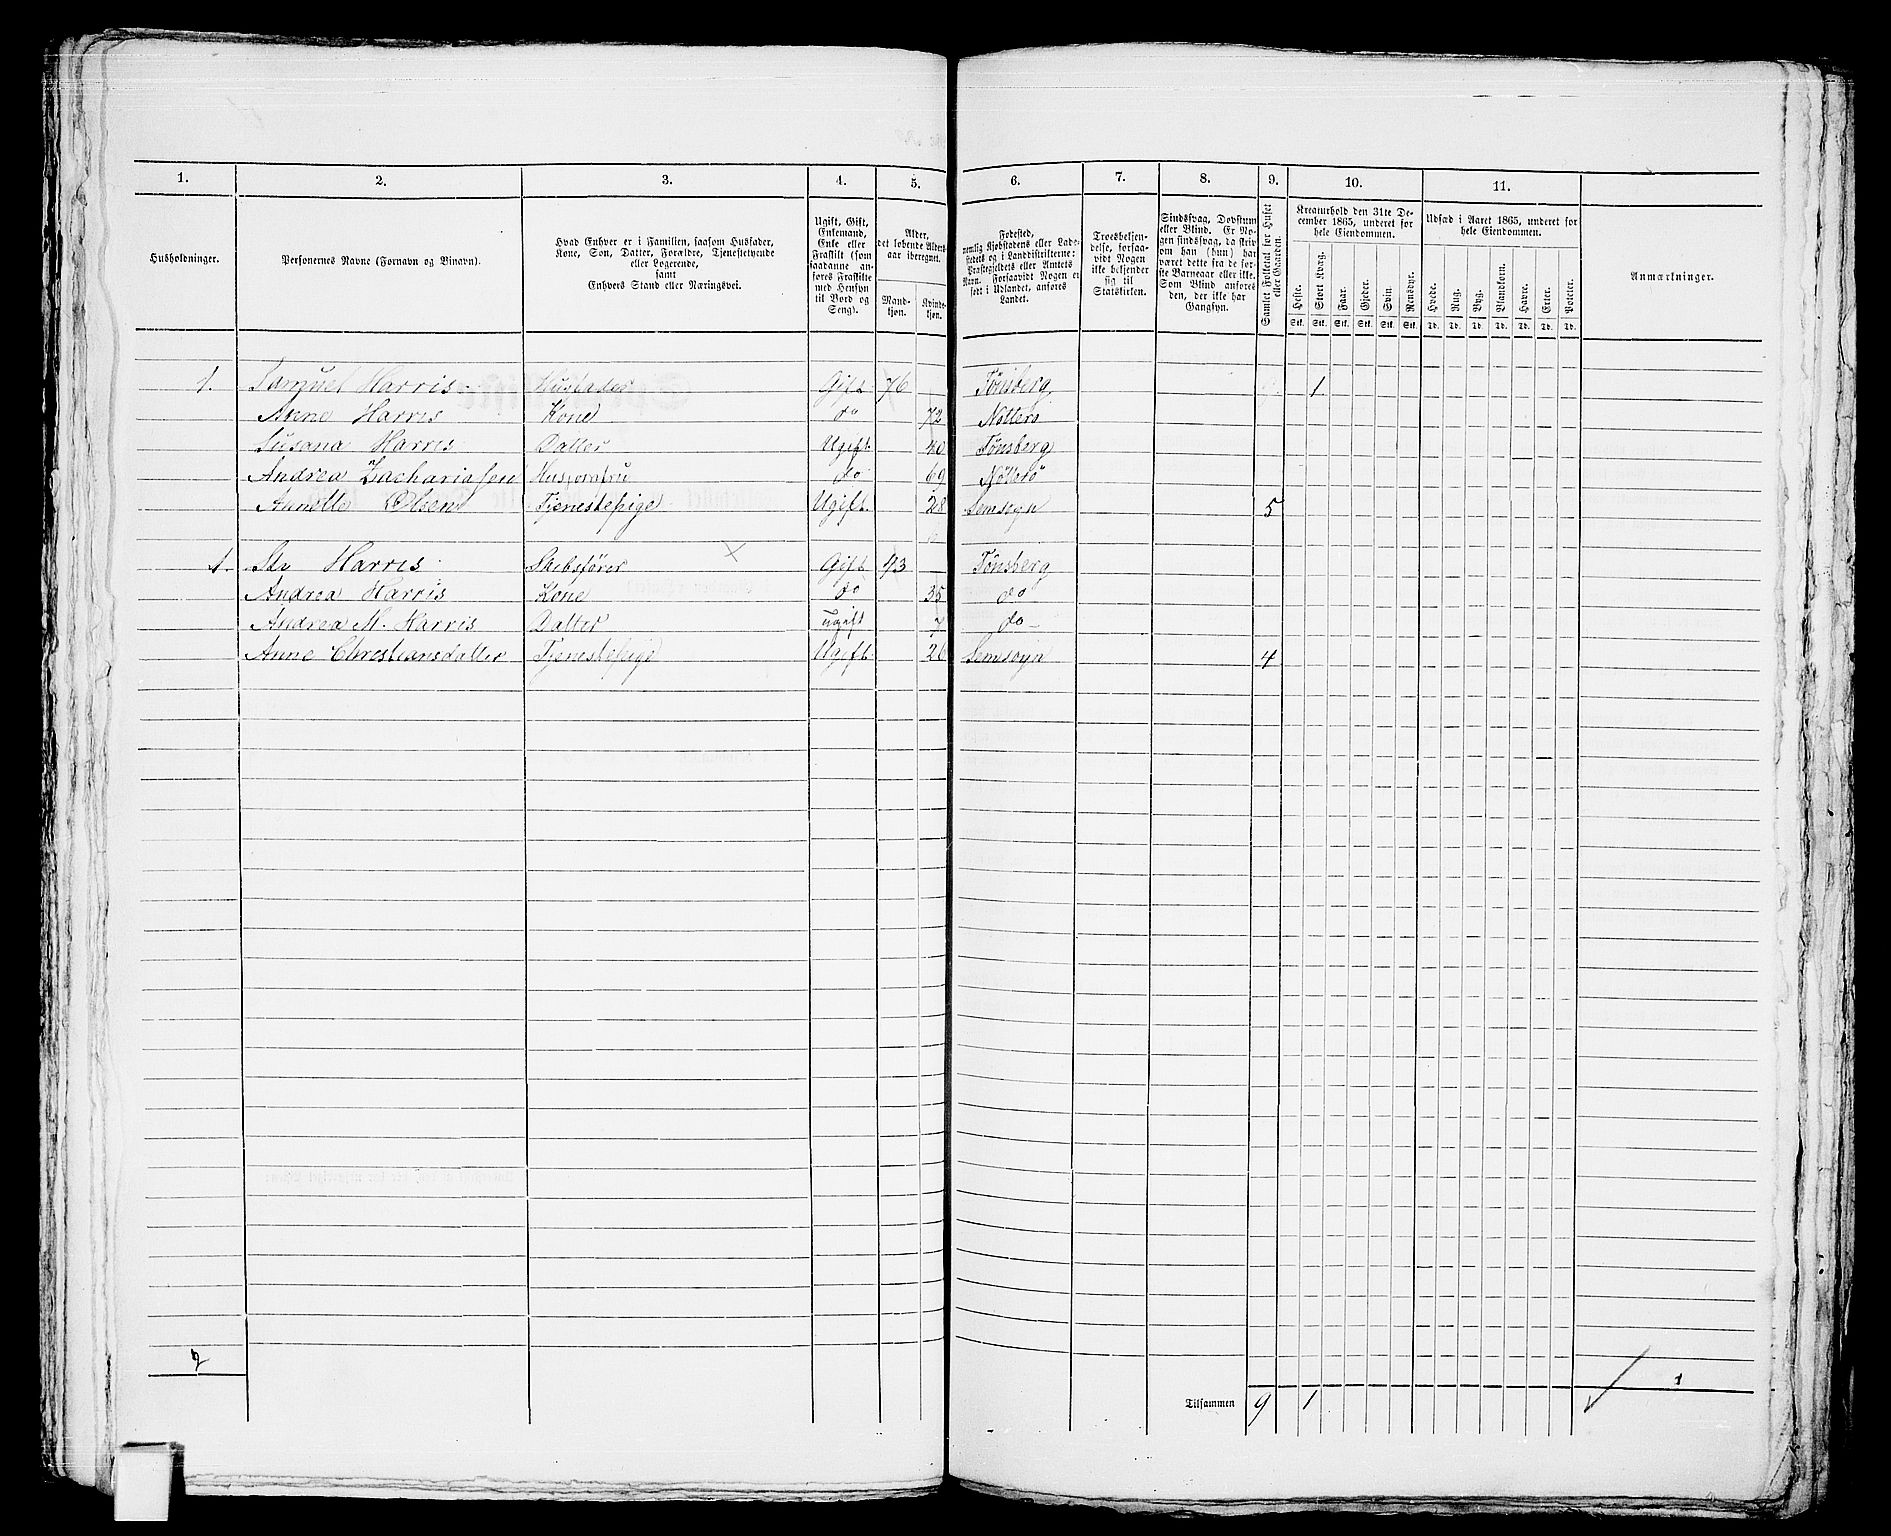 1. 2. 3. 4. 5. 6. 7. 8. 9. 10. 11.
Husholdninger.
Personernes Navne (Fornavn og Binavn).
Hvad Enhver er i Familien, saasom Husfader,
Kone, Søn, Datter, Forældre, Tjenestetyende
eller Logerende,
samt
Enhvers Stand eller Næringsvei.
Ugift, Gift,
Enkemand,
Enke eller
Fraskilt (som
saadanne an-
føres Fraskilte
med Hensyn
til Bord og
Seng).
Alder,
det løbende Alders-
aar iberegnet.
Mand-
kjøn.
Kvinde-
kjøn.
Fødested,
nemlig Kjøbstadens eller Lade-
stedets og i Landdistrikterne:
Præstegjeldets eller Amtets
Navn. Forsaavidt Nogen er
født i Udlandet, anføres
Landet.
Troesbekjen-
delse, forsaa-
vidt Nogen
ikke bekjender
sig til
Statskirken.
Sindssvag, Døvstum
eller Blind. Er No-
gen sindssvag, da skriv
om han (hun) har
været dette fra de før-
ste Barneaar eller ikke.
Som Blind anføres
den, der ikke har
Gangsyn.
Samlet Folketal for Huset
eller Gaarden.
Kreaturhold den 31te De-
cember 1865, underet for
hele Eiendommen.
Heste. Stort Kvæg. Faar. Gjeder. Svin. Rensdyr.
Stk. Stk. Stk. Stk. Stk. Stk.
Udsæd i Aaret 1865, underet for
hele Eiendommen.
Hvede. Rug. Byg. Blandkorn. Havre. Erter. Poteter.
Td. Td. Td. Td. Td. Td. Td.
Anmærkninger.
1. Samuel Harris Husfader Gift 76 Tønsberg 1
Anne Harris Kone do 72 Nøtterø
Susana Harris Datter Ugift 40 Tønsberg
Andrea Zachariasen do 69 Nøtterø
Anette Olsen Tjenestepige Ugift 28 Semsogn 5
1. Harris Skibsfører × Gift 43 Tønsberg
Andrea Harris Kone do 35 do
Andrea M. Harris Datter ugift 7 do
Anne Christiansdatter Tjenestepige Ugift 26 Semsogn 4
2 1
Tilsammen 9 1